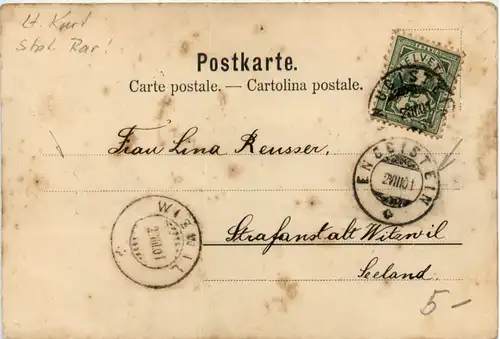 lt. Karl
Stpl. Rar!
Postkarte.
Carte postale. — Cartolina postale.
HELVETIA
Frau Lina Reusser,
ENGGISTEIN
2VIII01
WIZWIL
2VIII01
Strafanstalt Witzwil
Seeland.
5-